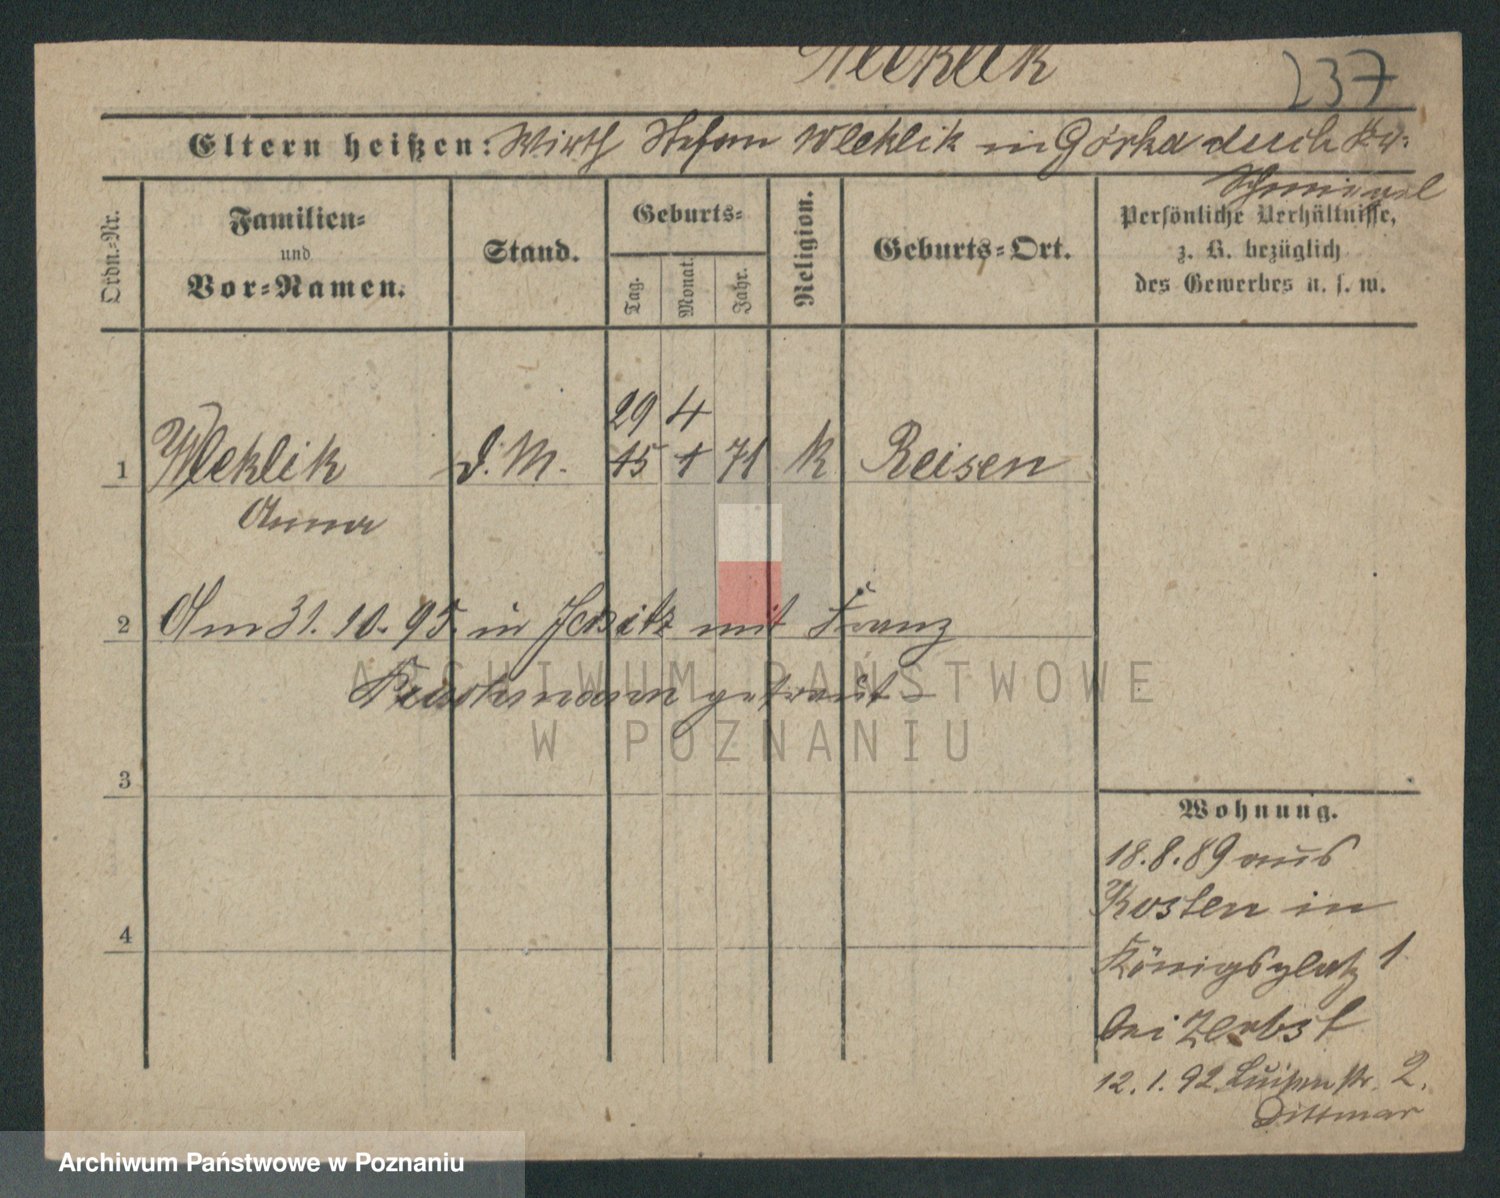 Wleklik
237
Eltern heißen: Wirth Stefan Wleklik in Górka duch Kr.
Schmiegel
Ordn.-Nr.
Familien-
und
Vor-Namen.
Stand.
Geburts-
Tag.
Monat.
Jahr.
Religion.
Geburts-Ort.
Persönliche Verhältnisse,
z. B. bezüglich
des Gewerbes u. s. w.
29 4
1 Wleklik d. M. 15 1 71 K Reisen
Anna
2 Am 31. 10. 95. in Jersitz mit Franz
getraut
3
4
Wohnung.
18.8.89 aus
Kosten in
Königsplatz 1
bei Zerbst
12.1.92 Luisenstr. 2.
Dittmar
ARCHIWUM PAŃSTWOWE
W POZNANIU
Archiwum Państwowe w Poznaniu